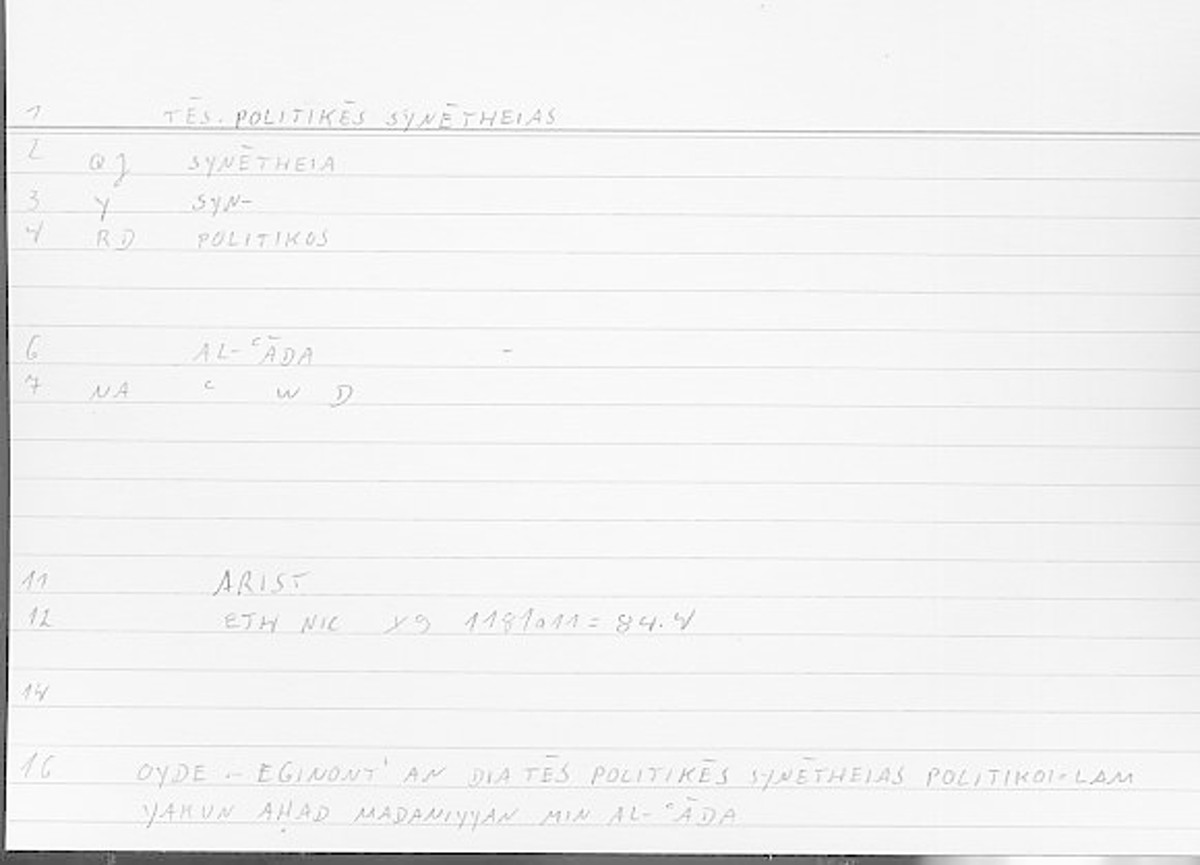 1 TĒS POLITIKĒS SYNĒTHEIAS
2 QJ SYNĒTHEIA
3 Y SYN-
4 RD POLITIKOS
6 AL-ʿĀDA -
7 NA ʿ W D
11 ARIST
12 ETH NIC X9 1181a11 = 84.4
14
16 OYDE – EGINONT' AN DIA TĒS POLITIKĒS SYNĒTHEIAS POLITIKOI - LAM
YAKUN AḤAD MADANIYYAN MIN AL-ʿĀDA